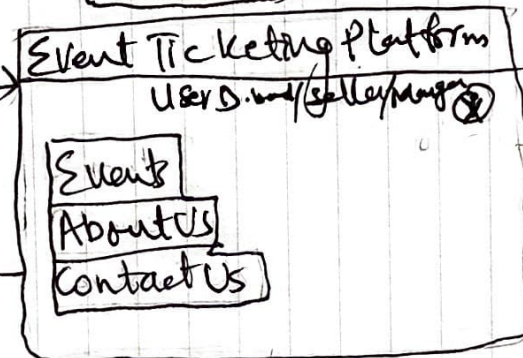 Event Ticketing Platform
User D. /Seller/Manager
Events
About Us
Contact Us